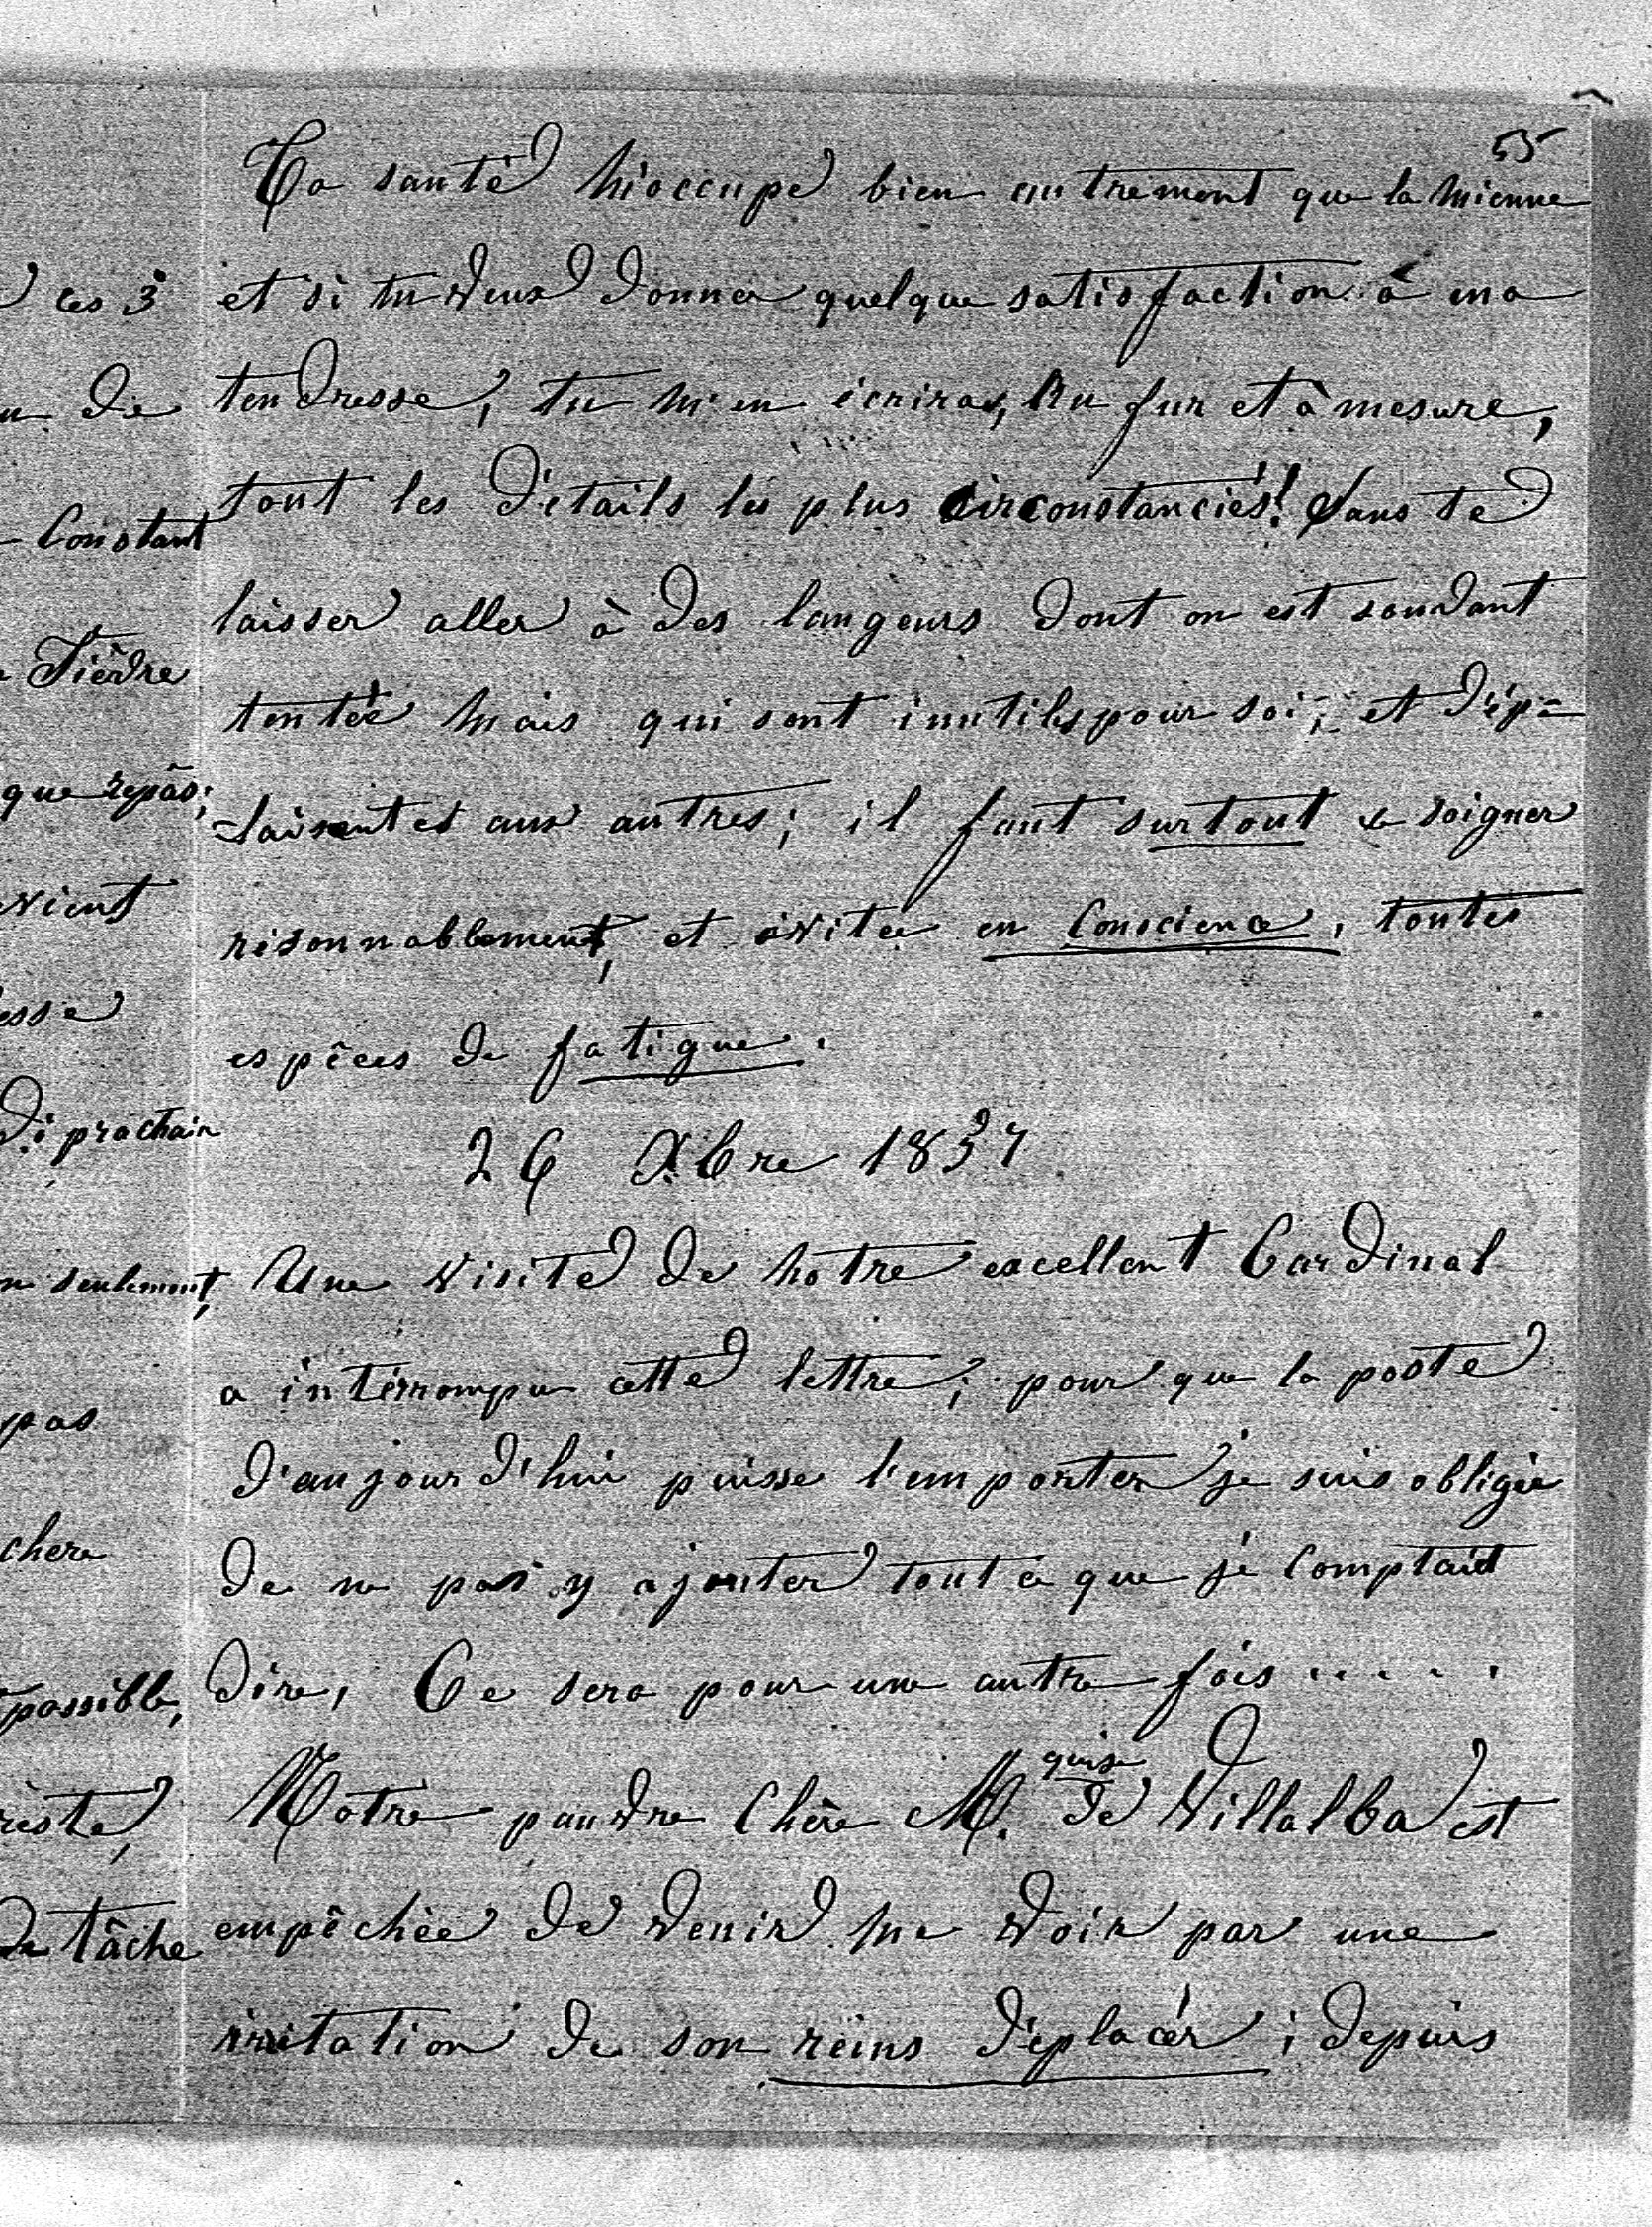 55
Ta santé m'occupe bien autrement que la mienne
et si tu veux donner quelque satisfaction à ma
tendresse, tu m'en écriras, au fur et à mesure,
tout les détails les plus circonstanciés! Sans te
laisser aller à des langeurs dont on est souvant
tentée mais qui sont inutiles pour soi; et dép=
=laisentes aux autres; il faut surtout se soigner
risonnablement, et évitée en Conscience, toutes
espêces de fatigue.
26 Xbre 1837
Une visite de notre excellent Cardinal
a intérrompu cette lettre; pour que la poste
d'aujourd'hui puisse l'emporter je suis obligée
de ne pas y ajouter tout ce que je comptait
dire, Ce sera pour une autre fois .....
Notre pauvre Chère M.quise de Villalba est
empêchée de venir me voir par une
irritation de son reins déplacér; depuis
ces 3
de
Constant
Fièvre
que repâs;
vient
esse
di prochain
seulement,
pas
chere
possible,
reste,
de tâche